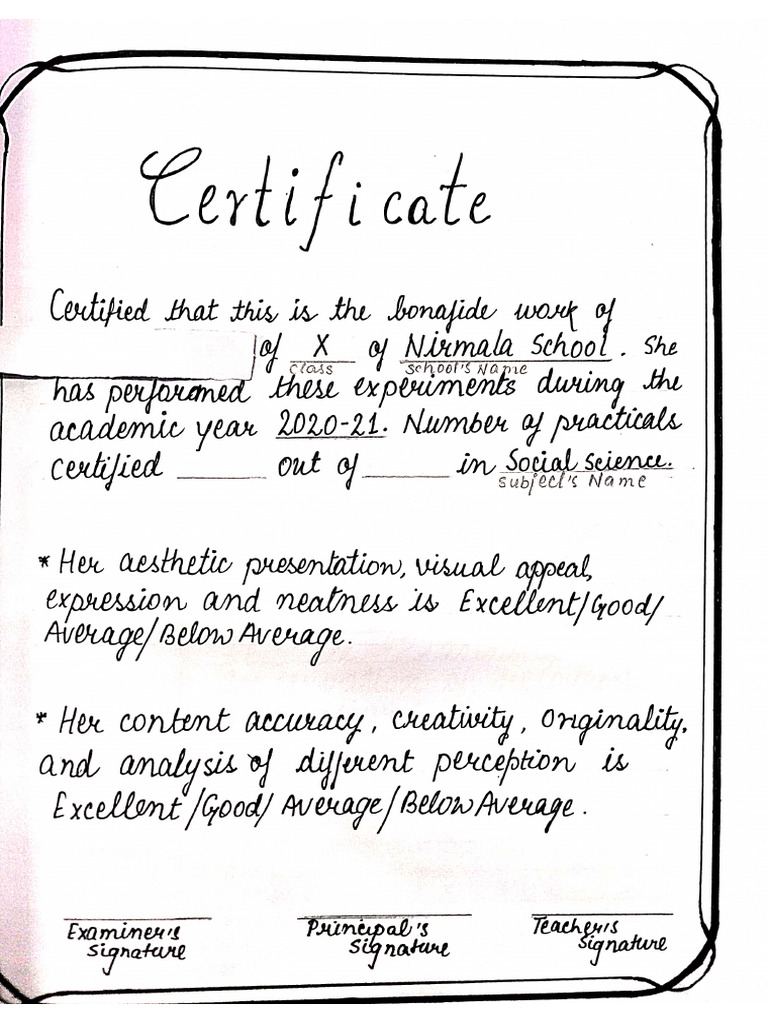 Certificate
Certified that this is the bonafide work of
of X of Nirmala School. She
class school's Name
has performed these experiments during the
academic year 2020-21. Number of practicals
certified ______ out of ______ in Social Science.
subject's Name
* Her aesthetic presentation, visual appeal,
expression and neatness is Excellent/Good/
Average/Below Average.
* Her content accuracy, creativity, originality,
and analysis of different perception is
Excellent/Good/Average/Below Average.
Examiner's Principal's Teacher's
Signature Signature Signature